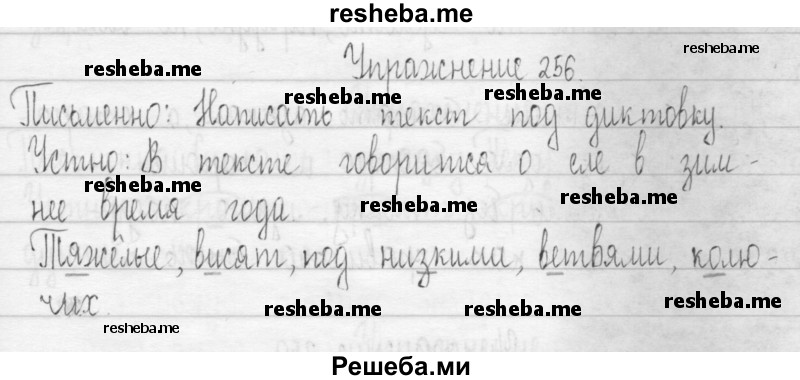 resheba.me
Упражнение 256.
resheba.me
resheba.me
Письменно: Написать текст под диктовку.
resheba.me
resheba.me
Устно: В тексте говорится о еле в зим-
resheba.me
нее время года.
resheba.me
resheba.me
Тяжёлые, висят, под низкими, ветвями, колю-
чих.
resheba.me
resheba.me
resheba.me
resheba.me
Решеба.ми